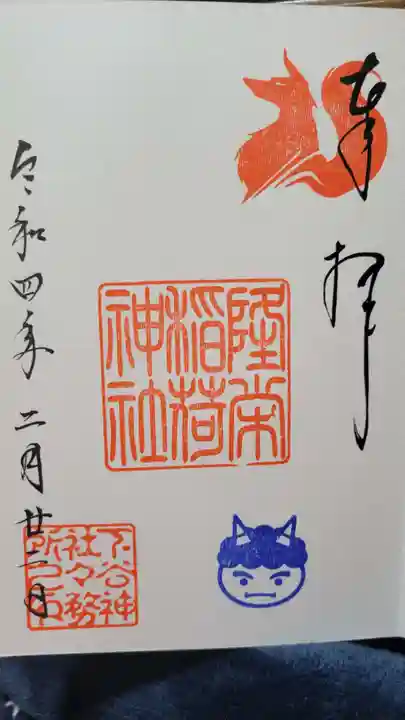 奉拝
隆栄
稲荷
神社
下谷神
社々務
所之印
令和四年二月廿二日